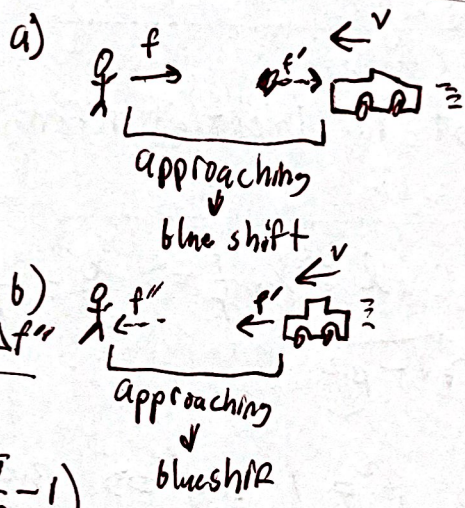 a)
f
f'
v
approaching
blue shift
b)
f''
f'
v
f''
approaching
blueshift
-1)